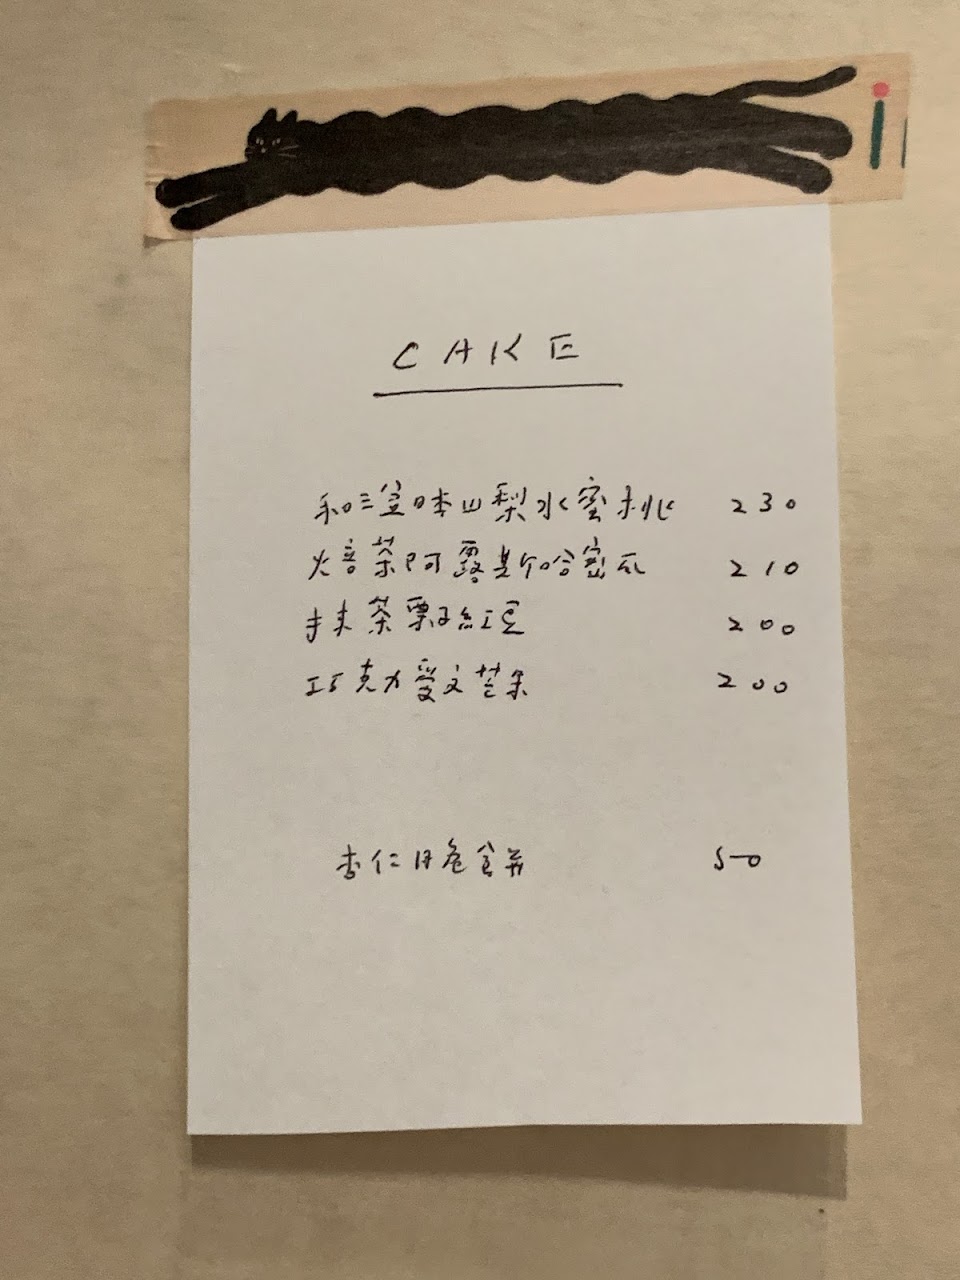 CAKE
和三盆日本山梨水蜜桃 230
焙茶阿露斯哈密瓜 210
抹茶栗子紅豆 200
巧克力愛文芒果 200
杏仁月卷食并 50